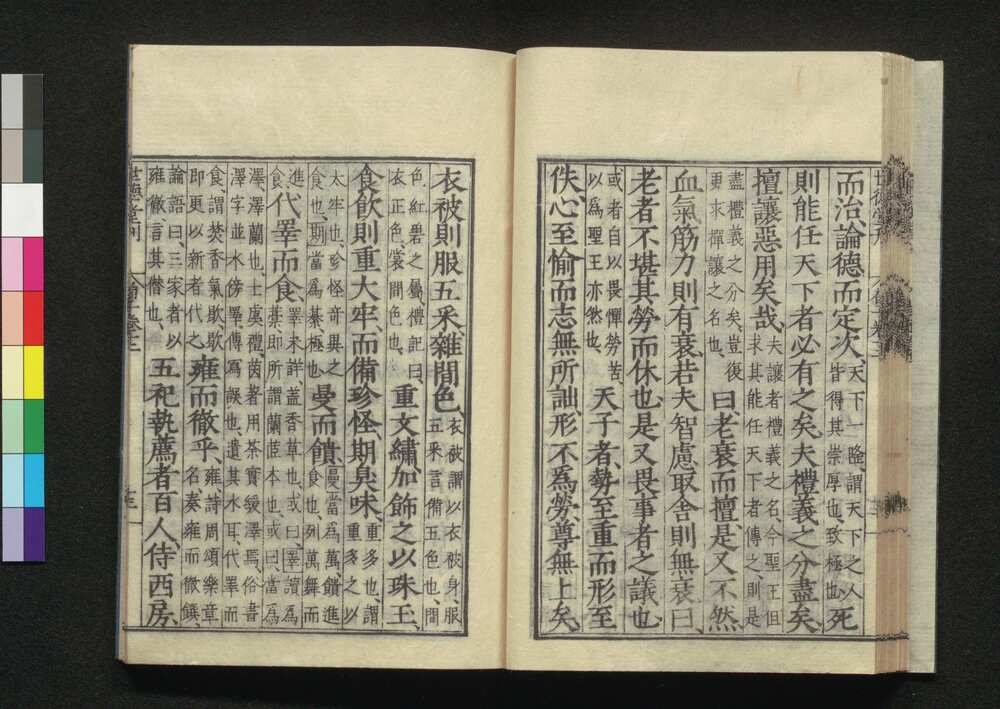 而治論德而定次、天下一隆、謂天下之人
皆得其崇厚也、致極也、死
則能任天下者必有之矣夫禮義之分盡矣、
擅讓惡用矣哉、夫讓者禮義之名今聖王但
求其能任天下者傳之、則是
盡禮義之分矣豈復
更求禪讓之名也、曰、老衰而擅是又不然
血氣筋力則有衰若夫智慮取舍則無衰曰、
老者不堪其勞而休也是又畏事者之議也
或者自以畏憚勞苦、
以爲聖王亦然也、天子者、勢至重而形至
佚、心至愉而志無所詘、形不爲勞、尊無上矣、
衣被則服五采、雜間色、衣被謂以衣被身、服
五采言備五色也、間
色、紅碧之屬、禮記曰、
衣正色、裳間色也、重文繡加飾之以珠玉、
食飲則重大牢、而備珍怪、期臭味、重多也、謂
重多之以
太牢也、珍怪奇異之
食也、期當爲綦極也、曼而饋、曼當爲萬、饋進
食也、列萬舞而
進
食、代睪而食、睪未詳蓋香草也、或曰、睪讀爲
藁即所謂蘭茝本也、或曰、當爲
澤、澤蘭也、士虞禮、茵著用荼實綏澤焉、俗書
澤字並水傍睪、傳寫誤也、遺其水耳、代睪而
食謂焚香氣歇歇
即更以新者代之、雍而徹乎、雍詩周頌樂章
名、奏雍而徹饌、
論語曰、三家者以
雍徹言其僭也、五祀執薦者百人侍西房、